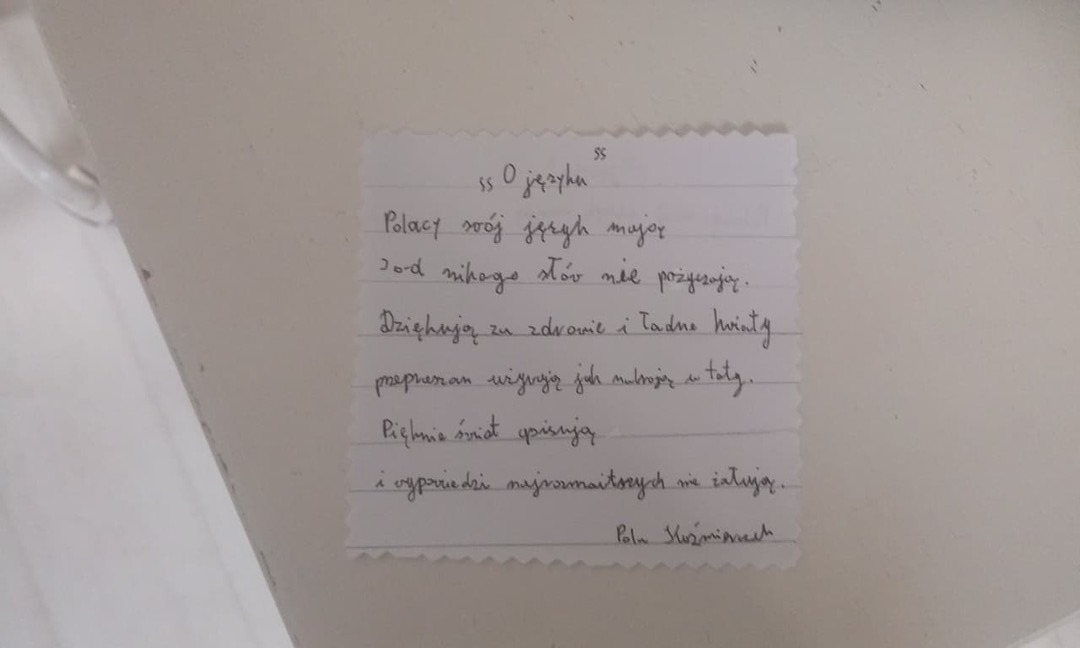 "O języku"
Polacy swój język mają
i od nikogo słów nie pożyczają.
Dziękują za zdrowie i ładne kwiaty
przepraszam używają jak nabroją u taty.
Pięknie świat opisują
i wypowiedzi najrozmaitszych nie żałują.
Pola